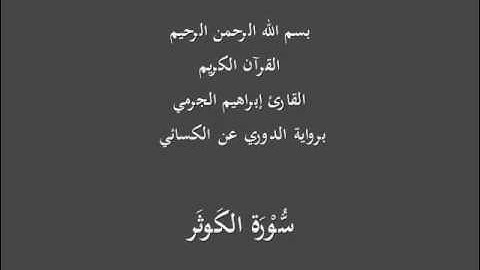 بسم الله الرحمن الرحيم
القرآن الكريم
القارئ إبراهيم الجرمي
برواية الدوري عن الكسائي
سُّوْرَة الكَوثَر